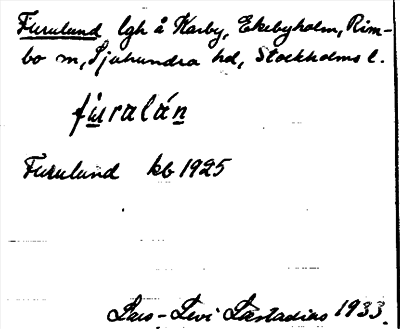 Furulund lgh å Karby, Ekebyholm, Rim-
bo sn, Sjuhundra hd, Stockholms l.
fúralán
Furulund kb 1925
Lars-Levi Læstadius 1933.